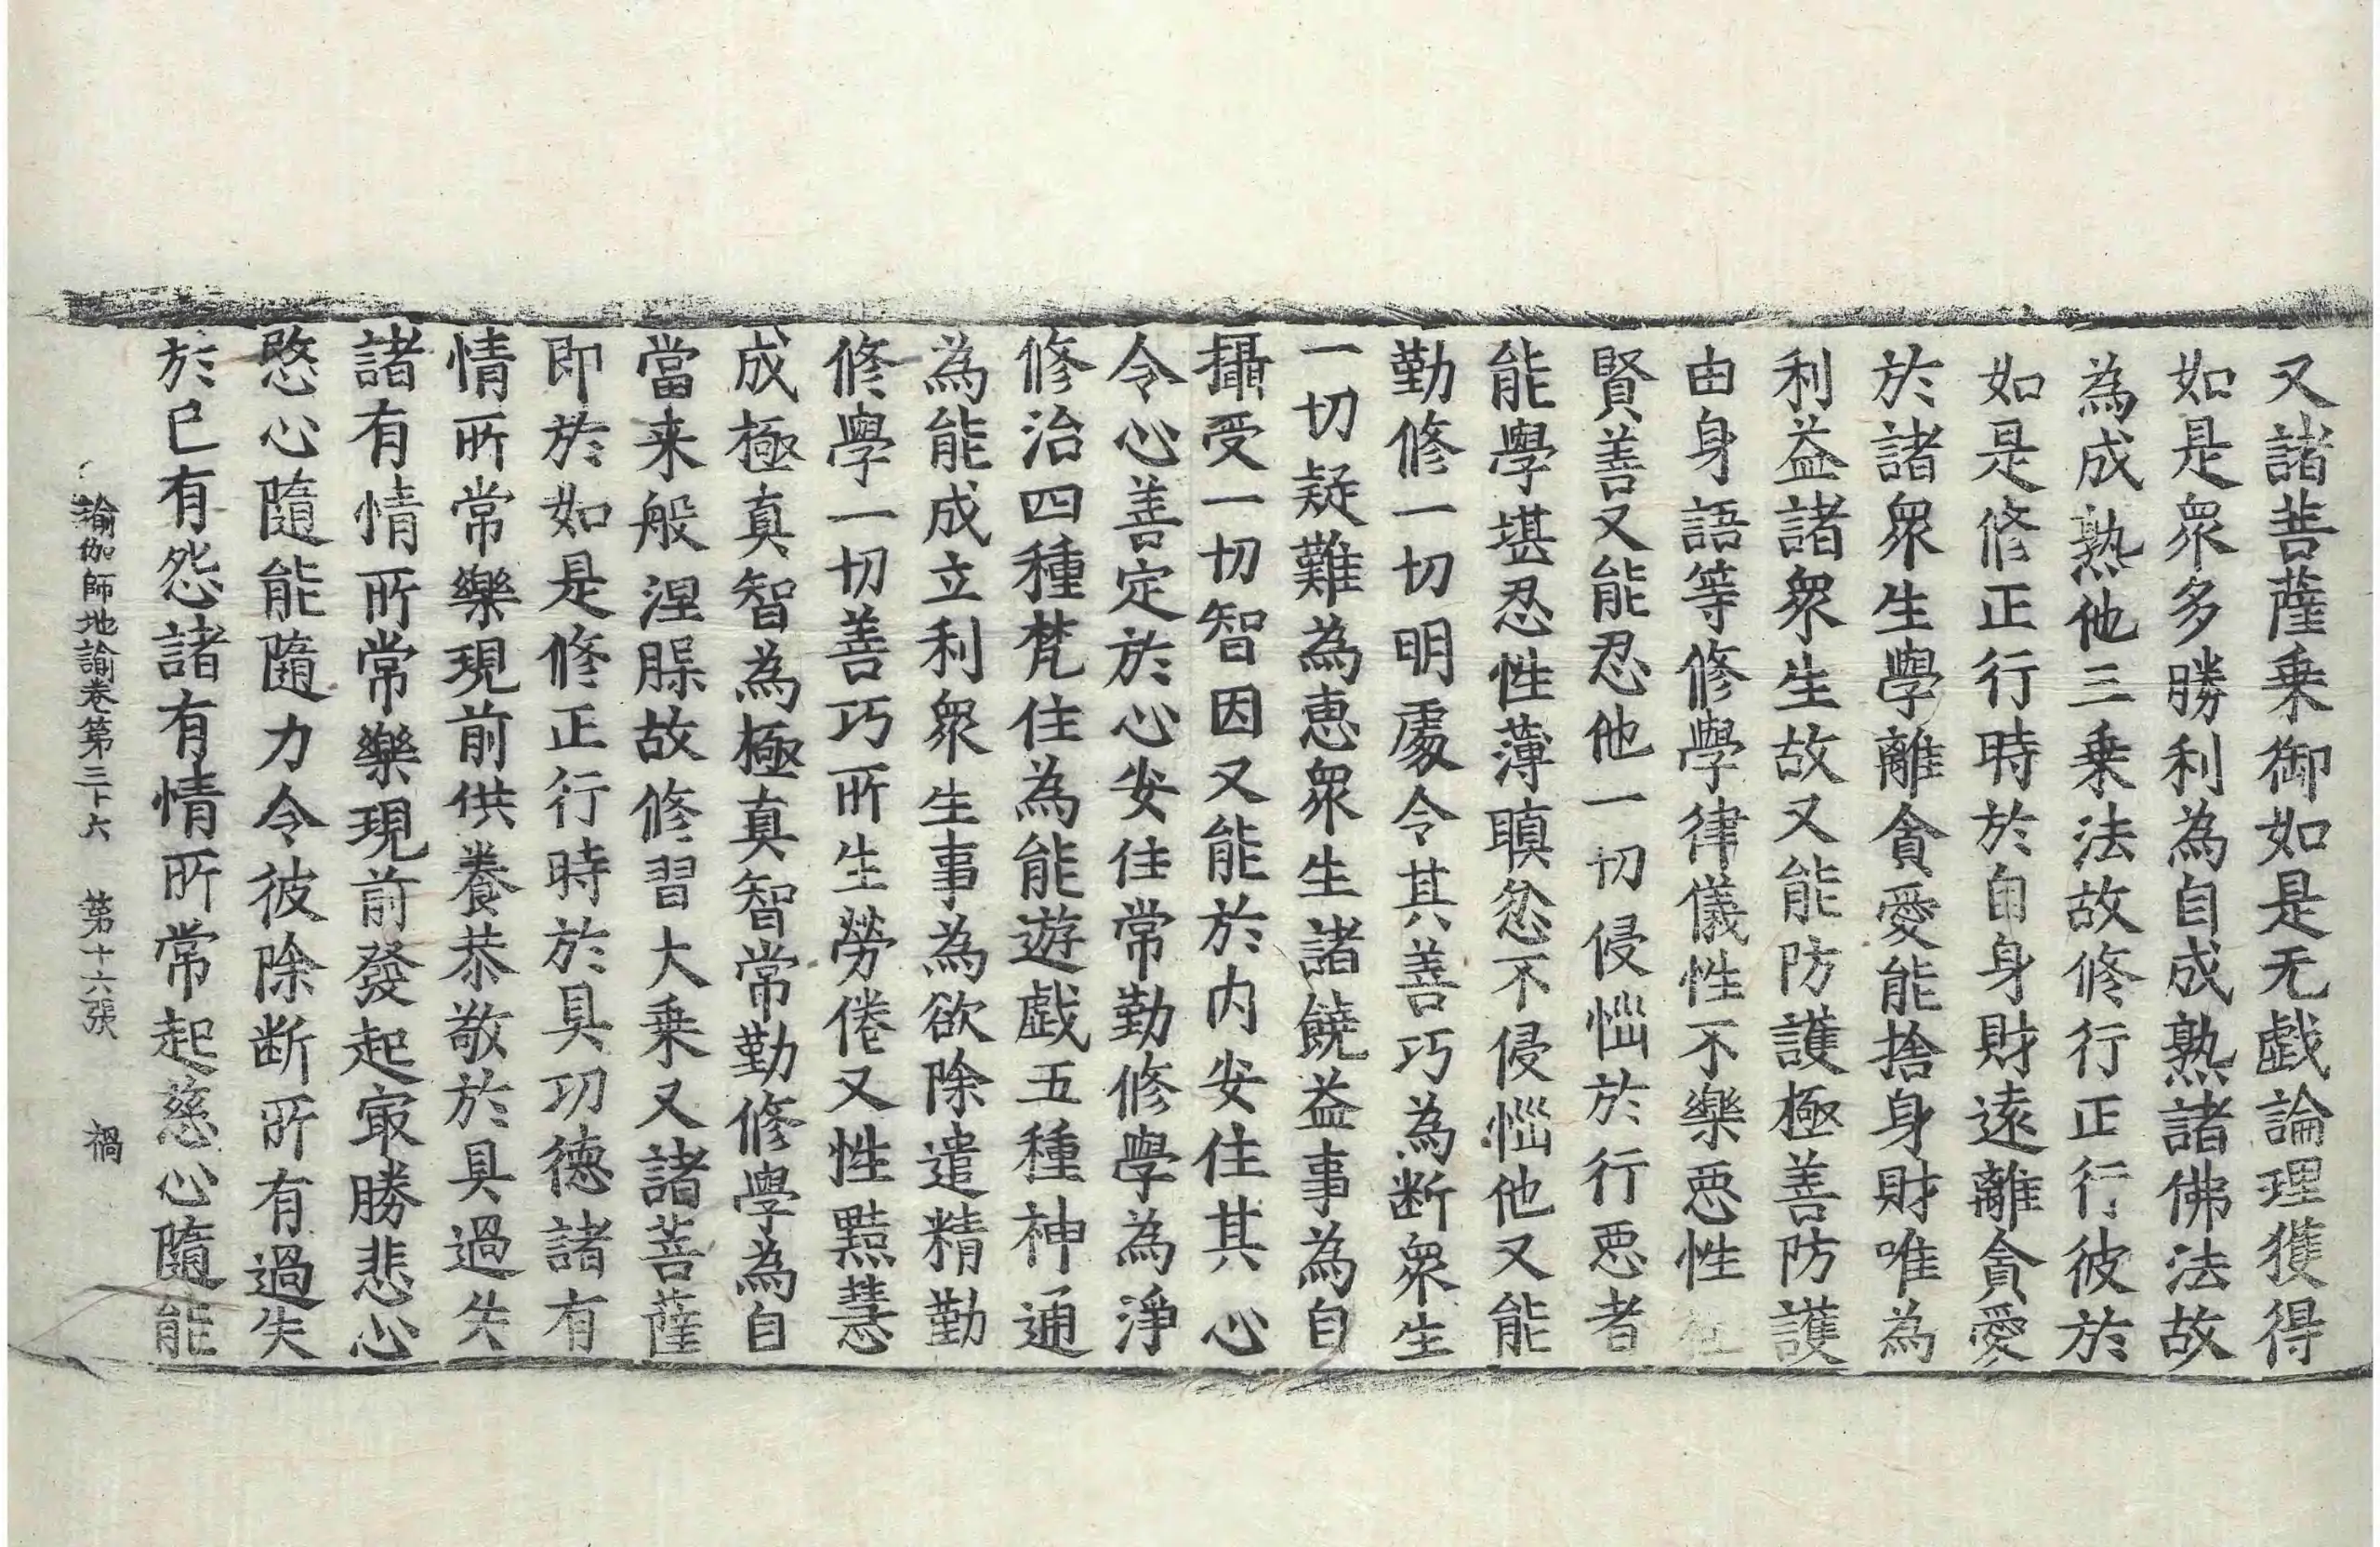 又諸菩薩乗御如是无戱論理獲得
如是衆多勝利為自成熟諸佛法故
為成熟他三乗法故修行正行彼於
如是修正行時於自身財遠離貪愛
於諸衆生學離貪愛能捨身財唯為
利益諸衆生故又能防護極善防護
由身語等修學律儀性不樂惡性
賢善又能忍他一切侵惱於行惡者
能學堪忍性薄瞋忿不侵惱他又能
勤修一切明處令其善巧為断衆生
一切疑難為惠衆生諸饒益事為自
攝受一切智因又能於内安住其心
令心善定於心安住常勤修學為淨
修治四種梵住為能遊戱五種神通
為能成立利衆生事為欲除遣精勤
修學一切善巧所生勞倦又性黠慧
成極真智為極真智常勤修學為自
當来般涅槃故修習大乗又諸菩薩
即於如是修正行時於具功德諸有
情所常樂現前供養恭敬於具過失
諸有情所常樂現前發起㝡勝悲心
愍心隨能隨力令彼除断所有過失
於已有怨諸有情所常起慈心隨能
瑜伽師地論卷第三十六 第十六張 禍